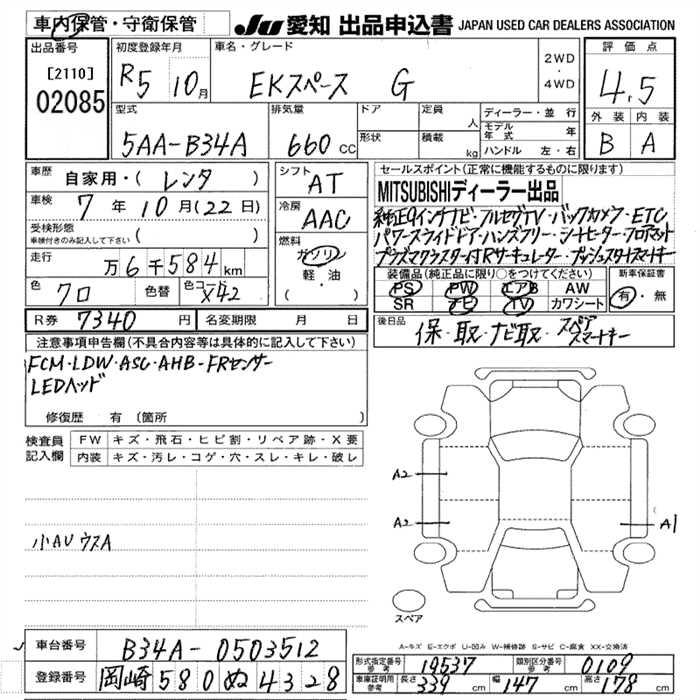 車内保管・守衛保管
JU 愛知 出品申込書 JAPAN USED CAR DEALERS ASSOCIATION
出品番号 [2110] 02085
初度登録年月 R5 10月
車名・グレード EKスペース G
2WD・4WD
評価点 4.5
外装 内装
B A
型式 5AA-B34A
排気量 660 cc
ドア 形状
定員 人
積載 kg
ディーラー・並行
モデル年式 年
ハンドル 左・右
車歴 自家用・(レンタ)
車検 7年10月(22日)
受検形態 車検付きのみ記入して下さい ( )
走行 万6千584km
色 クロ 色替 色コード X42
シフト AT
冷房 AAC
燃料 ガソリン 軽・油 ( )
R券 7340円 名変期限 月 日
セールスポイント(正常に機能するものに限ります)
MITSUBISHIディーラー出品
純正9インチナビ・フルセグTV・バックカメラ・ETC
パワースライドドア・ハンズフリー・シートヒーター・フロアマット
プラズマクラスター付リヤサーキュレーター・プッシュスタートスマートキー
装備品(純正品に限り○をつけてください)
PS PW エアB AW
SR ナビ TV カワシート
新車保証書 有・無
後日品 保・取・ナビ取・スペアスマートキー
注意事項申告欄(不具合内容等は具体的に記入して下さい)
FCM・LDW・ASC・AHB・FRセンサー
LEDヘッド
修復歴 有 (箇所 )
検査員記入欄
FW キズ・飛石・ヒビ割・リペア跡・X要
内装 キズ・汚レ・コゲ・穴・スレ・キレ・破レ
小AU ウスA
A2
A2
A1
スペア
A-キズ E-エクボ U-凹み W-補修跡 S-サビ C-腐食 XX-交換済
車台番号 B34A-0503512
登録番号 岡崎580ぬ4328
形式指定番号 参考 19537 類別区分番号 参考 0109
車庫証明用 参考 長さ 339cm 幅 147cm 高さ 178cm